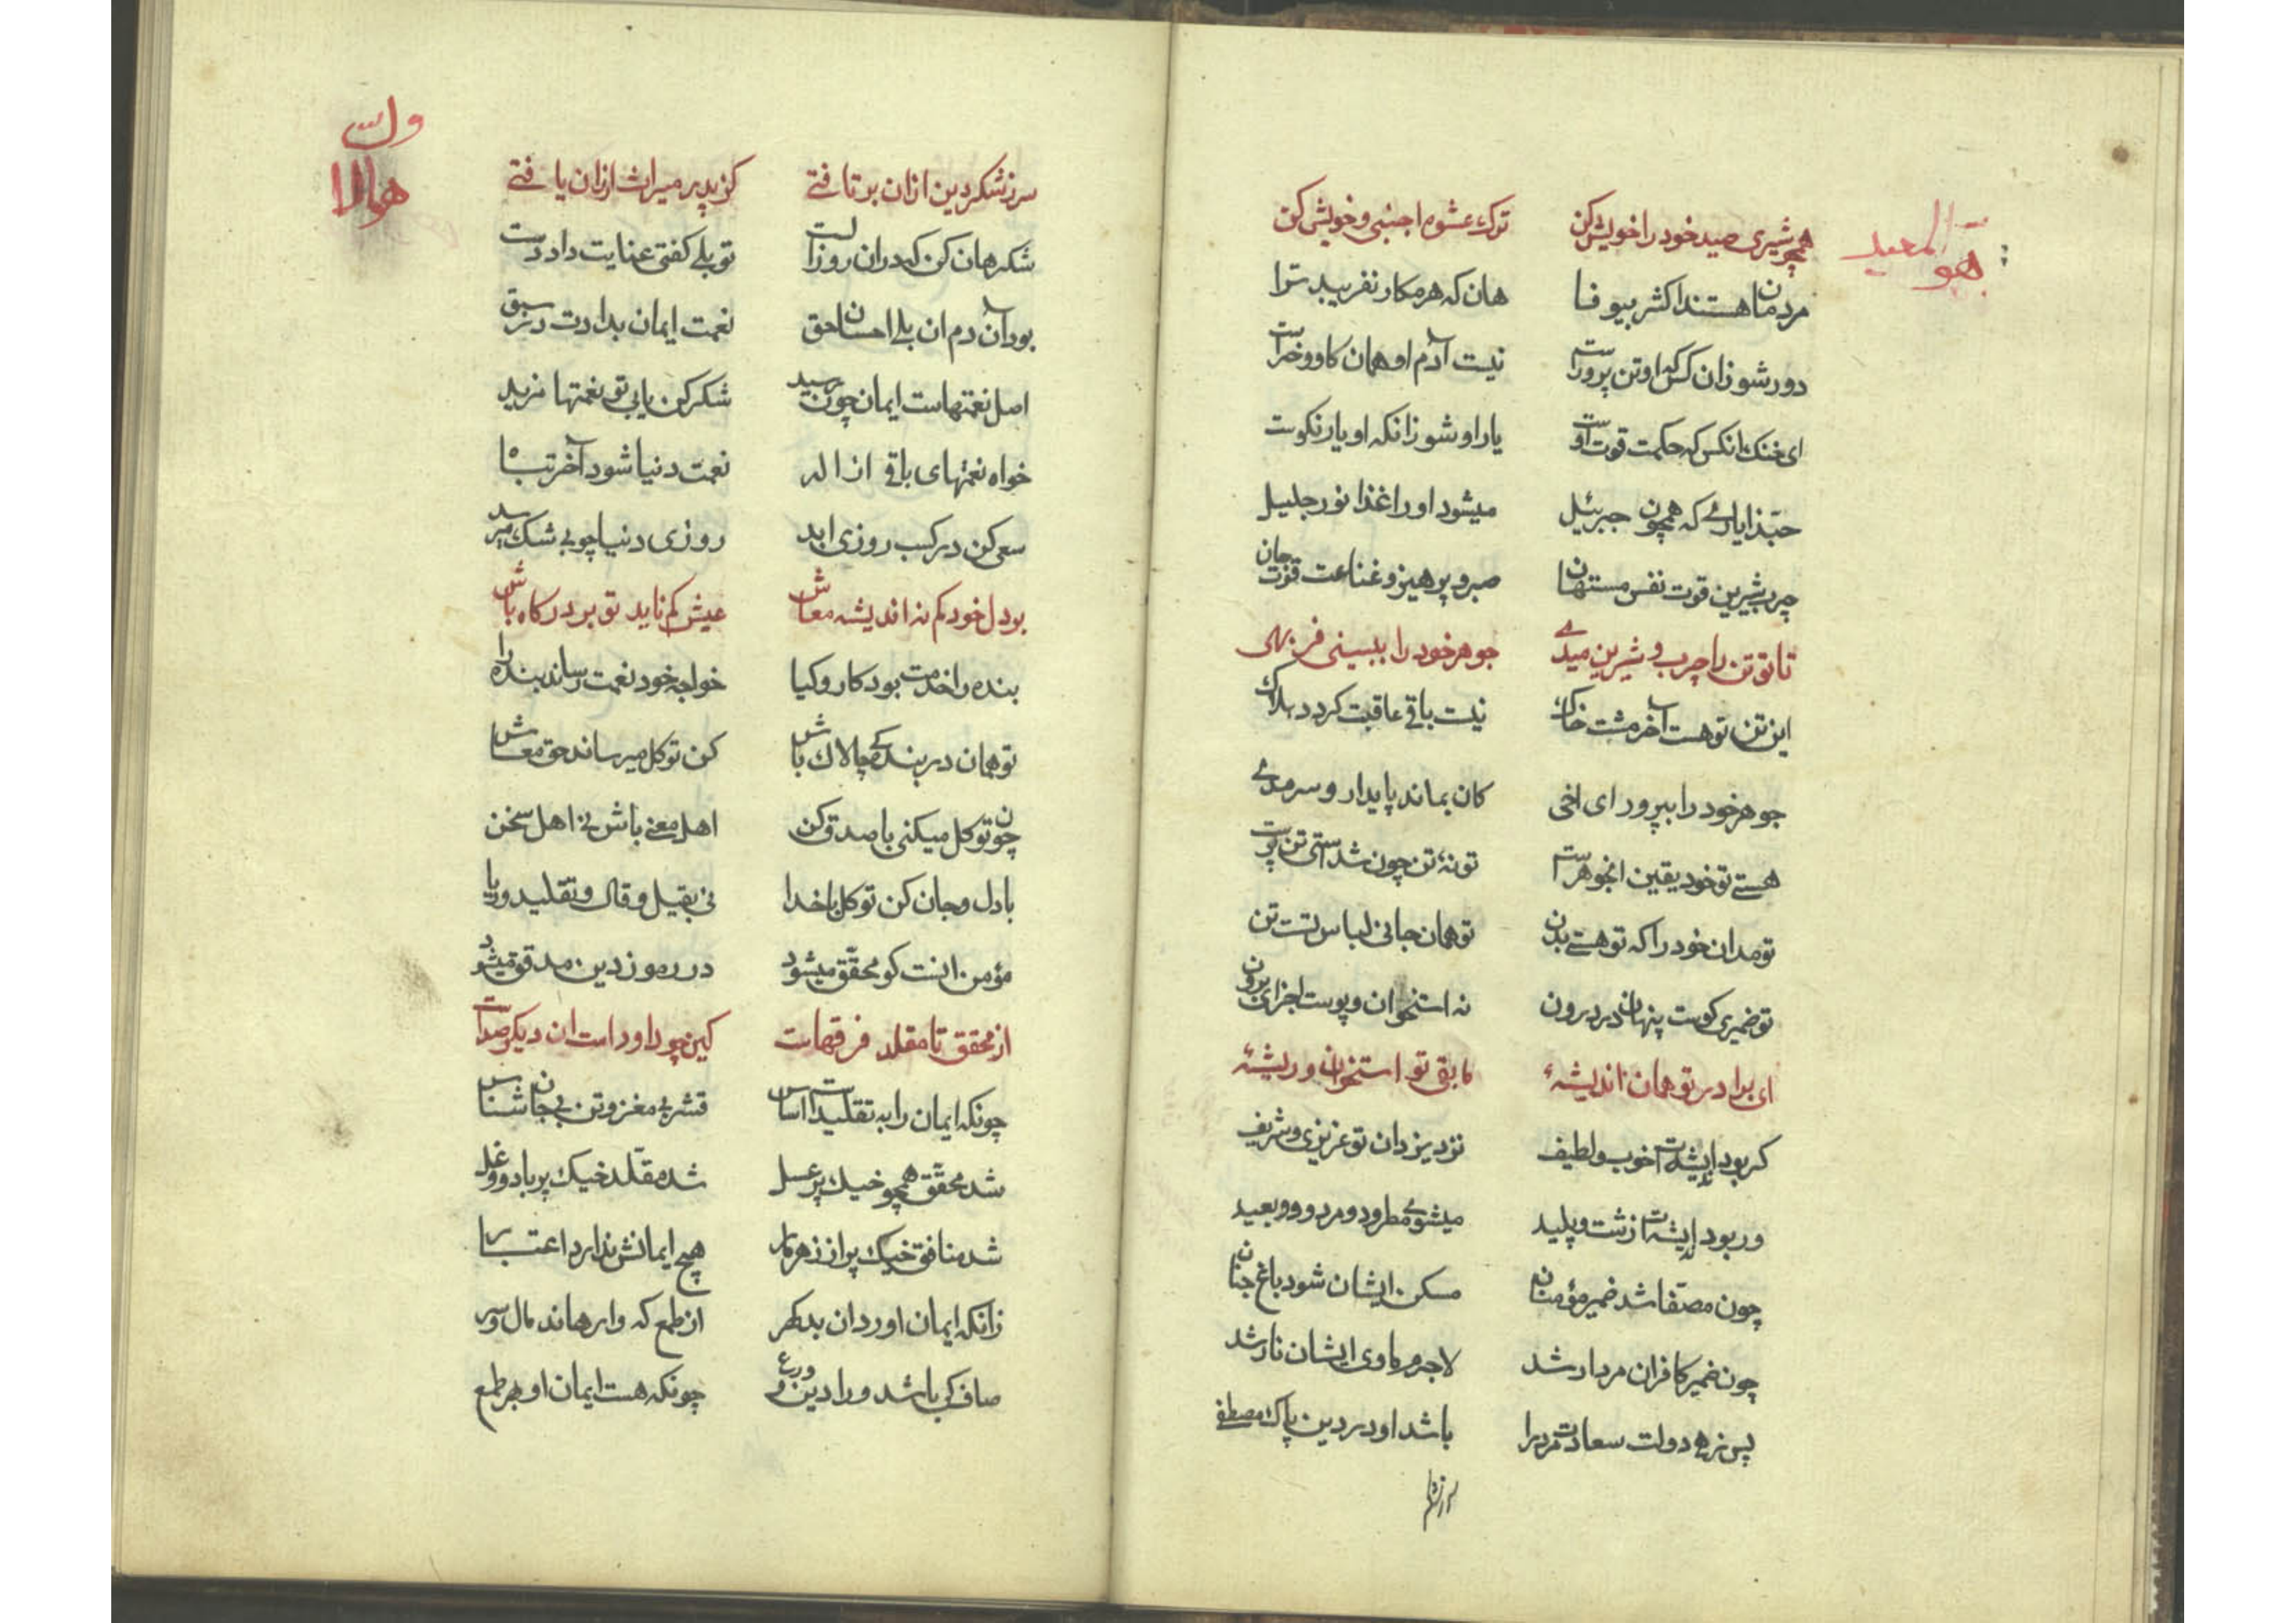 هو المعید
همچو شیری صید خود را خویش کن ترک عشوه اجنبی و خویش کن
مردمان هستند اکثر بیوفا هان که هر مکار نفریبد ترا
دور شو زان کس که او تن پرورست نیست آدم او همان کاو و خرست
ای خنک انکس که حکمت قوت اوست یار او شو زانکه او یار نکوست
حبّذا یاری که همچون جبرئیل میشود او را غذا نور جلیل
چرب شیرین قوت نفس مستهان صبر و پرهیز و غناعت قوت جان
تا تو تن را چرب و شیرین میدهی جوهر خود را نبینی فربهی
این تن تو هست آخر مشت خاک نیست باقی عاقبت کردد هلاک
جوهر خود را بپرور ای اخی کان بماند پایدار و سرمدی
هستی تو خود یقین انجوهرست تو نهٔ تن چون شدستی تن پرست
تو مدان خود را که تو هستی بدن تو همان جانی لباس تست تن
تو ضمیری کوست پنهان در درون نه استخوان و پوست اجزای برون
ای برادر تو همان اندیشهٔ ما بقی تو استخوان و ریشهٔ
کر بود اندیشه‌ات خوب و لطیف نزد یزدان تو عزیزی و شریف
ور بود اندیشه‌ات زشت و پلید میشوی مطرود و مردود و بعید
چون مصفّا شد ضمیر مؤمنان مسکن ایشان شود باغ جنان
چون ضمیر کافران مردار شد لاجرم ماوی ایشان نار شد
پس زهی دولت سعادت مر ورا باشد او در دین پاک مصطفی
سر ز شکر
هو الاول
سر ز شکر دین ازان برتافتی کز پدر میراث ارزان یافتی
شکر هان کن که دران روز الست تو بلی کفتی عنایت داد دست
بود آن دم ان بلی احسان حق نعمت ایمان بدادت در سبق
اصل نعمتهاست ایمان چون رسید شکر کن یابی تو نعمتها مزید
خواه نعمتهای باقی از اله نعمت دنیا شود آخر تباه
سعی کن در کسب روزی ابد روزی دنیا چو بی شک میرسد
بر دل خود کم نه اندیشه معاش عیش کم ناید تو بر درکاه باش
بنده را خدمت بود کار و کیا خواجه خود نعمت رساند بنده را
تو همان در بندکی چالاک باش کن توکل میرساند حق معاش
چون توکل میکنی با صدق کن اهل معنی باش نی اهل سخن
با دل و جان کن توکل با خدا نی بقیل و قال و تقلید و ریا
مؤمن انست کو محقّق میشود در رموز دین مدقق میشود
از محقق تا مقلد فرقهاست کین چو داود است ان دیکر صداست
چونکه ایمان را به تقلیدست اساس قشر بی مغز و تن بی جان شناس
شد محقّق همچو خیک پر عسل شد مقلّد خیک پر باد و وغل
شد منافق خیک پر از زهر مار هیچ ایمانش ندارد اعتبار
زانکه ایمان اورد ان بد کهر از طمع که وارهاند مال و سر
صاف کی باشد ورا دین و ورع چونکه هست ایمان او بهر طمع